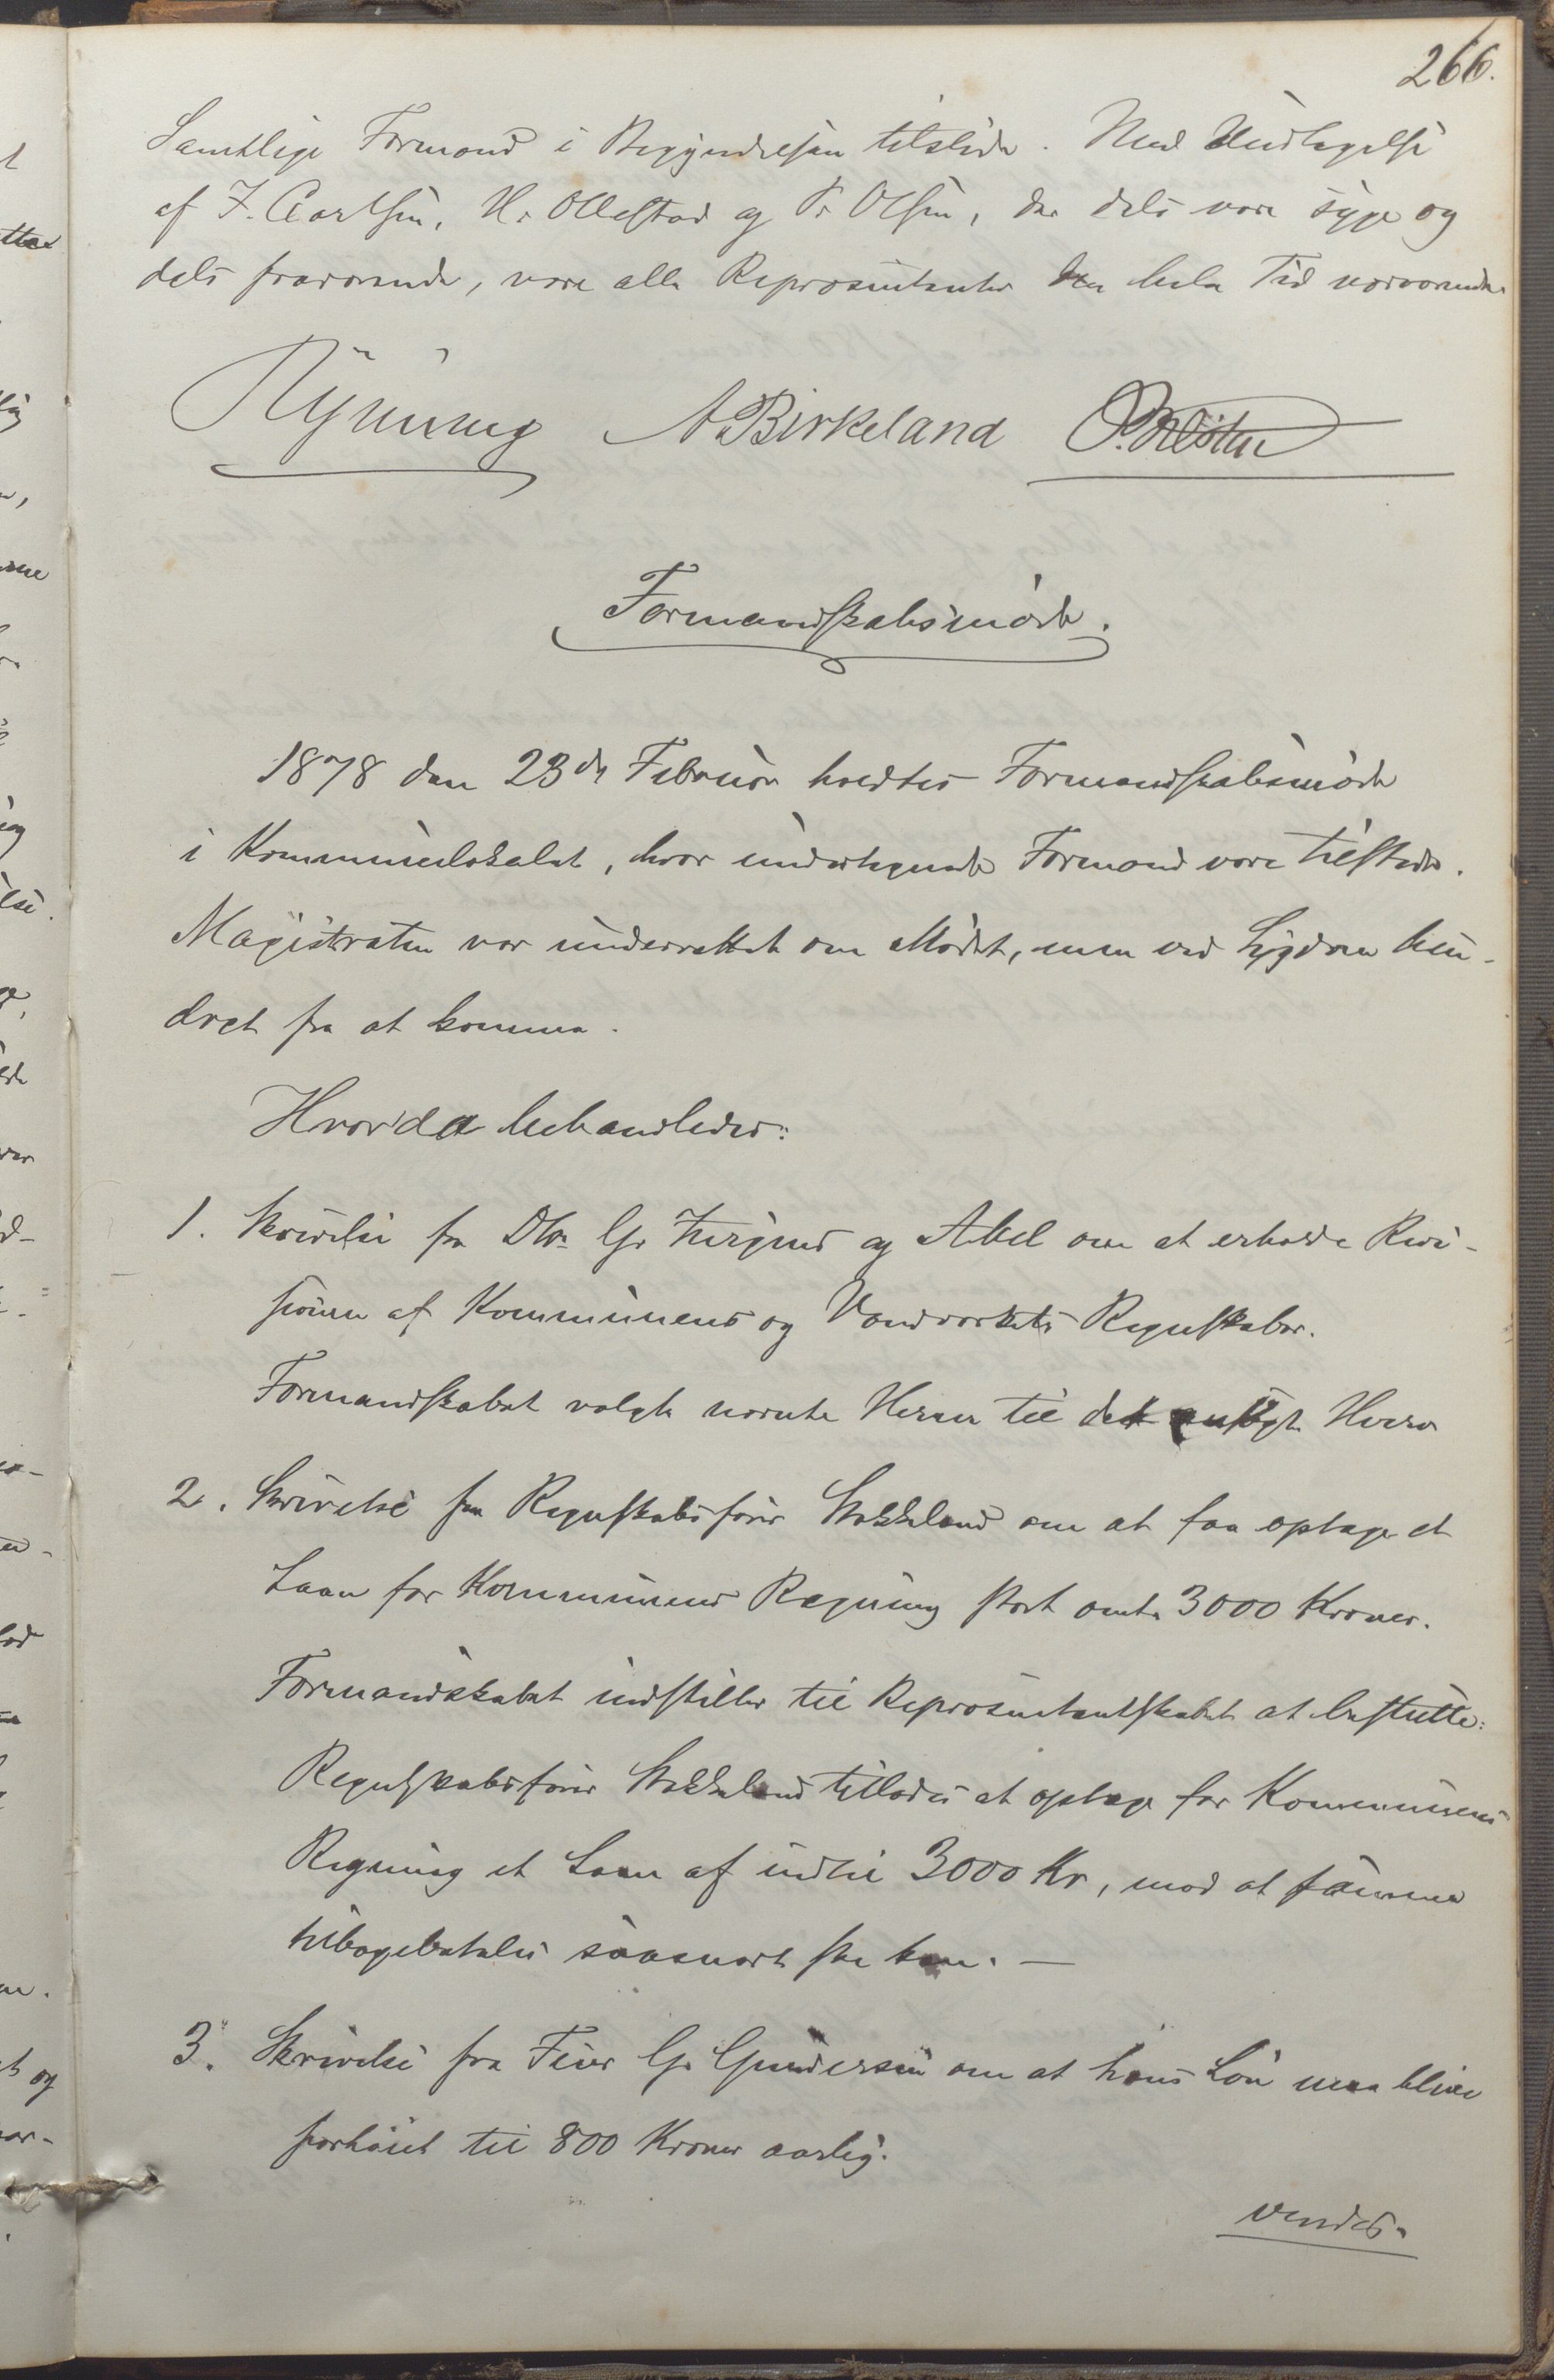 266.
Samtlige Formænd i Begyndelsen tilstede. Med Undtagelse
af J. Carlsen, H. Ollestad og P. Olsen, der dels vare syge og
dels fraværende, vare alle Repræsentanter den hele Tid nærværende
Rÿning A Birkeland
Formandskabsmöde.
1878 den 23de Februar holdtes Formandskabsmöde
i Kommunelokalet, hvor undertegnede Formænd vare tilstede.
Magistraten var underrettet om Mödet, men ved Sygdom hin-
dret fra at komme.
Hvorda behandledes:
1. Skrivelse fra Dhr. G. og Abel om at erholde Revi-
sionen af Kommunens og Vandværkets Regnskaber.
Formandskabet valgte nævnte Herrer til det ansögte Hverv
2. Skrivelse fra Regnskabsförer Stokkeland om at faa optage et
Laan for Kommunens Regning stort omtr 3000 Kroner.
Formandskabet indstiller til Repræsentantskabet at beslutte:
Regnskabsförer Stokkeland tillades at optage for Kommunens
Regning et Laan af indtil 3000 Kr, mod at samme
tilbagebetales saasnart ske kan. —
3. Skrivelse fra Feier G. Gundersen om at hans Lön maa blive
forhöiet til 800 Kroner aarlig.
vendes.